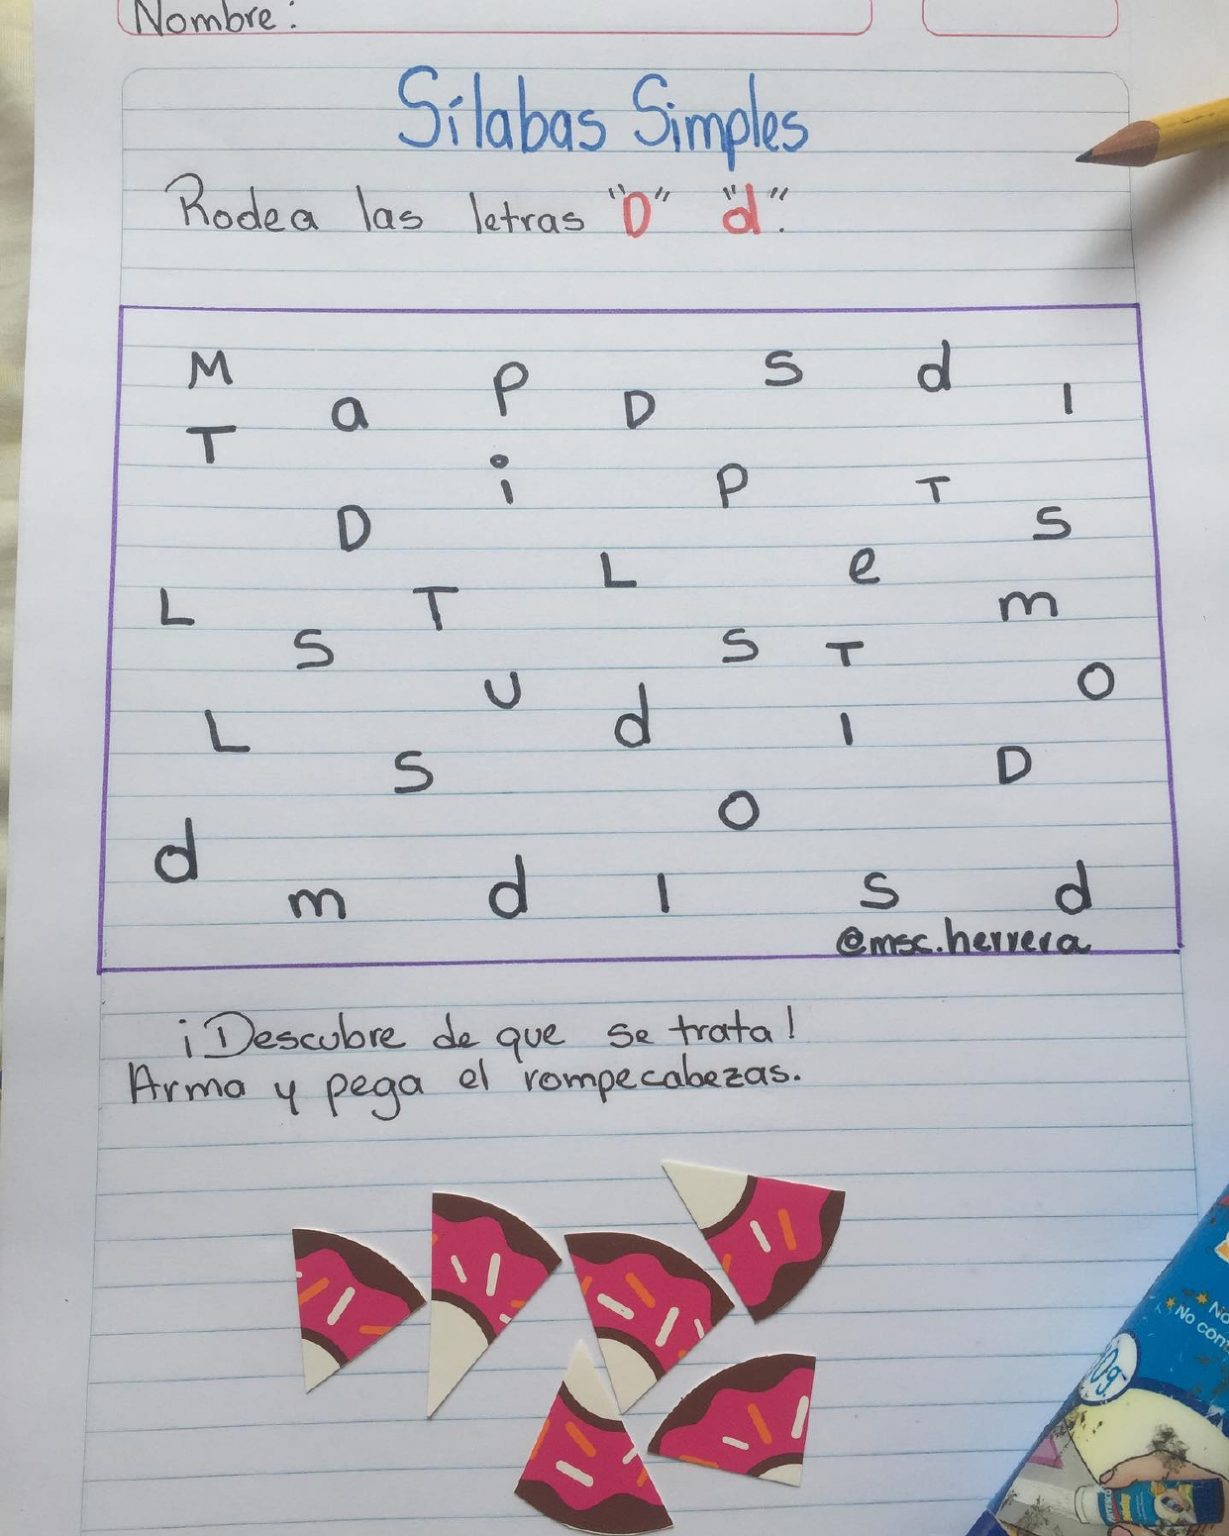 Nombre:
Sílabas Simples
Rodea las letras "D" "d".
M a P D S d I
T i P T
D S
L e
L T m
S S T
U d O
L I
S D
O
d
m d I S d
@msc.herrera
¡Descubre de que se trata!
Arma y pega el rompecabezas.
No
No